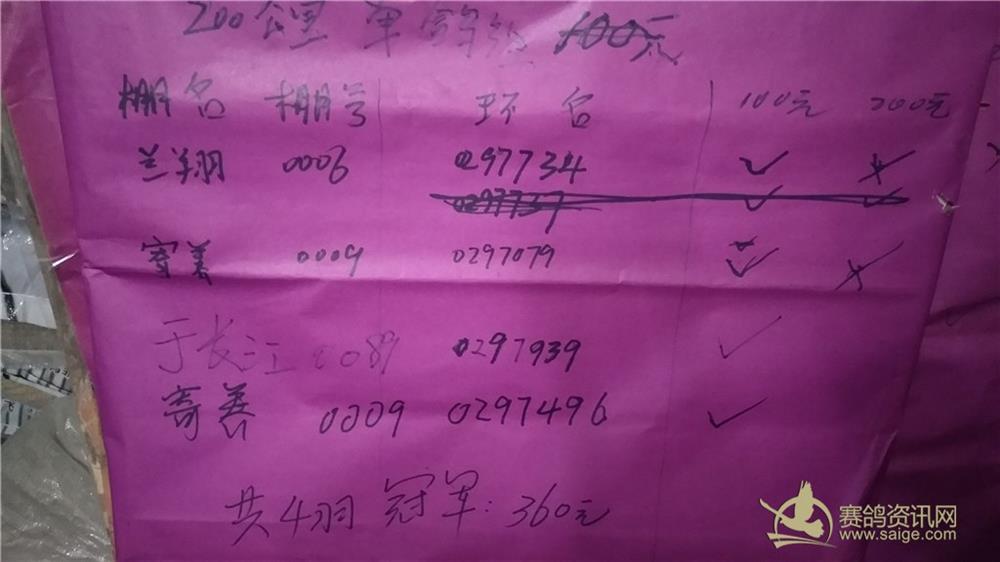 200公里 单羽组 100元
棚名 棚号 环名 100元 200元
兰翔 0006 0297734 ✓ ✗
0297737 ✓ ✓
寄养 0009 0297079 ✓ ✗
于长江 0089 0297939 ✓
寄养 0009 0297496 ✓
共4羽 冠军:360元
赛鸽资讯网
www.saige.com